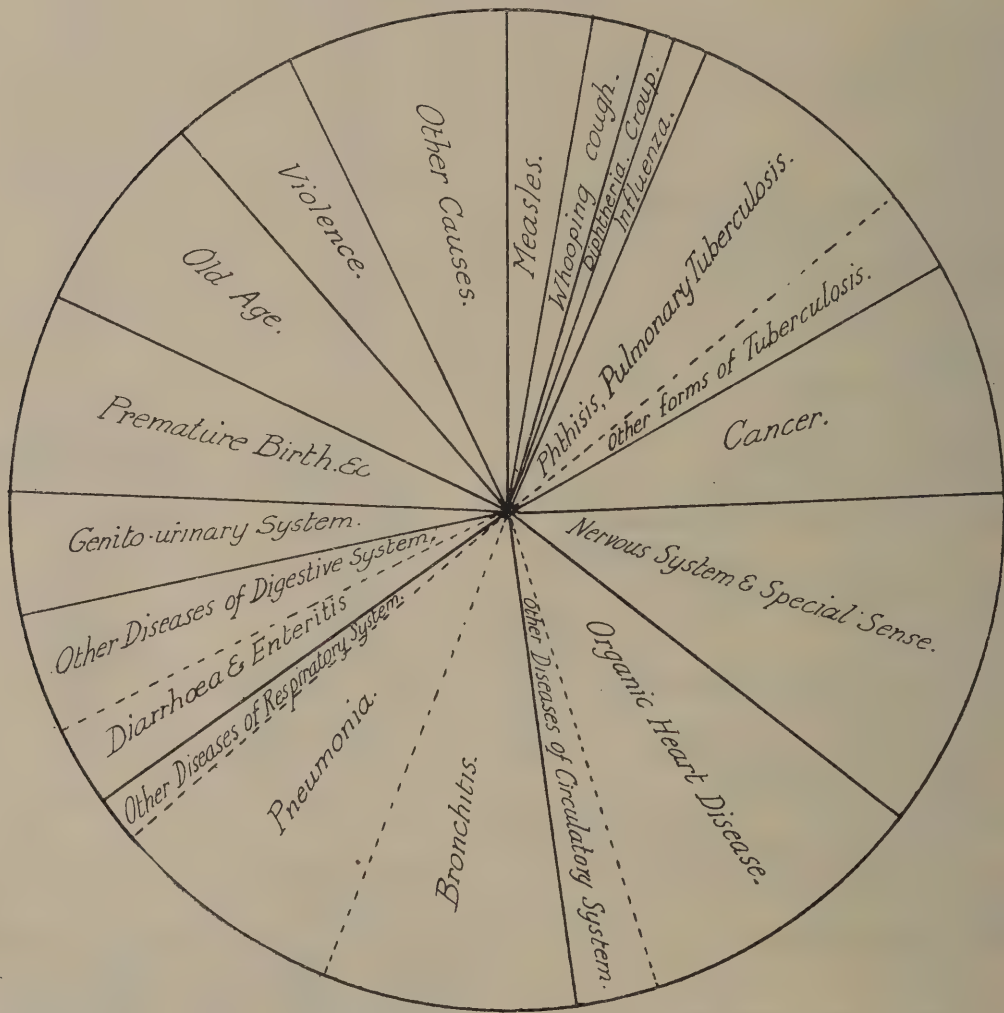 Measles.
Whooping cough.
Diphtheria. Croup.
Influenza.
Phthisis, Pulmonary Tuberculosis.
Other forms of Tuberculosis.
Cancer.
Nervous System & Special Sense.
Organic Heart Disease.
Other Diseases of Circulatory System.
Bronchitis.
Pneumonia.
Other Diseases of Respiratory System.
Diarrhœa & Enteritis
Other Diseases of Digestive System.
Genito-urinary System.
Premature Birth.&c
Old Age.
Violence.
Other Causes.